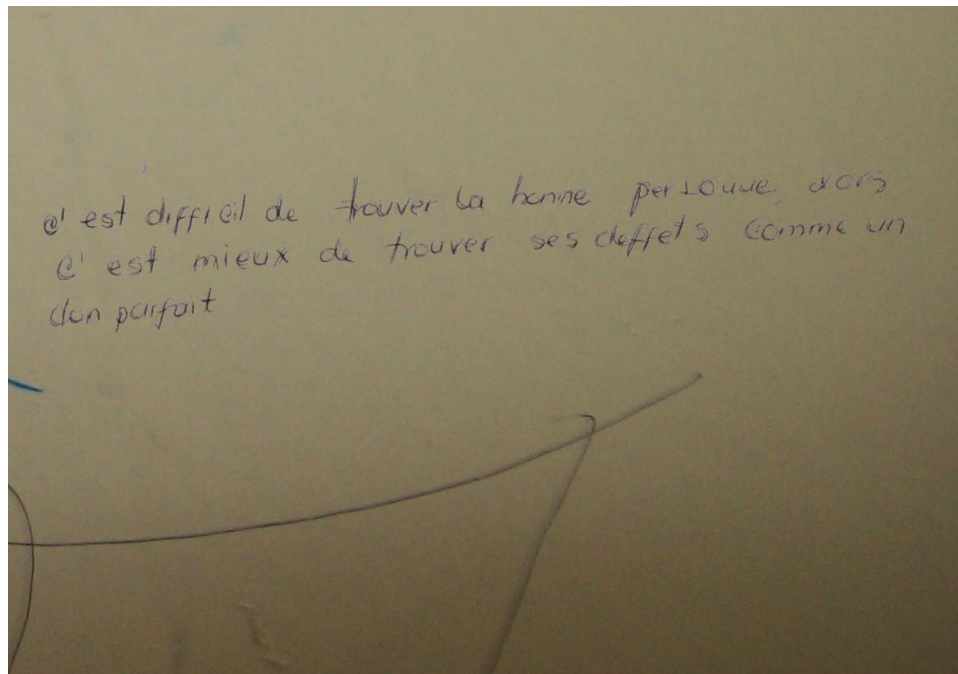 c'est difficil de trouver la bonne personne, alors
c'est mieux de trouver ses deffets comme un
don parfait